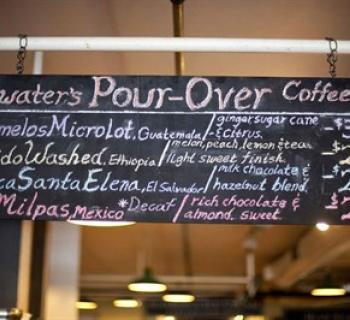 water's Pour-Over Coffee
melos MicroLot, Guatemala / ginger sugar cane & citrus.
do Washed, Ethiopia / melon, peach, lemon & tea light sweet finish.
ca Santa Elena, El Salvador / milk chocolate & hazelnut blend,
Milpas, Mexico *Decaf / rich chocolate & almond, sweet.